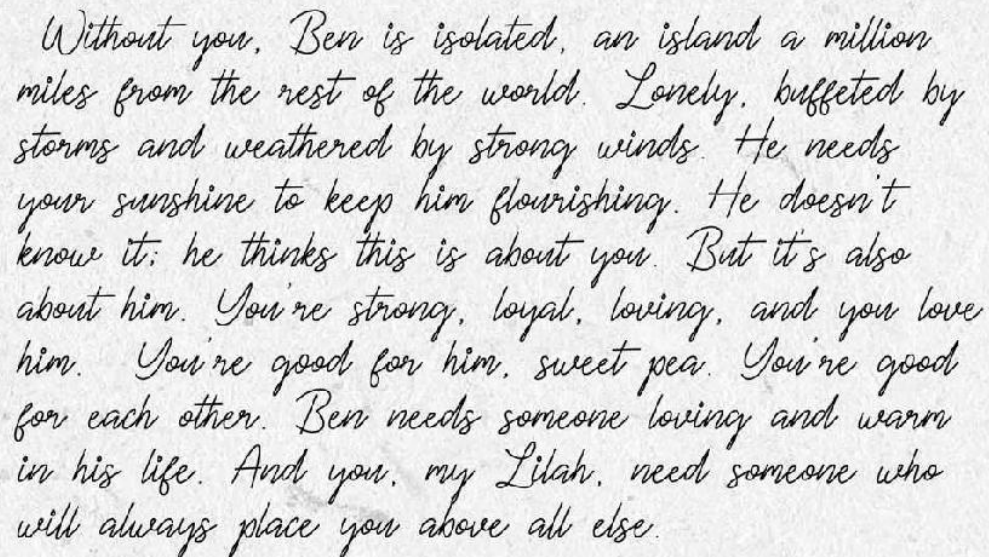 Without you, Ben is isolated, an island a million
miles from the rest of the world. Lonely, buffeted by
storms and weathered by strong winds. He needs
your sunshine to keep him flourishing. He doesn't
know it; he thinks this is about you. But it's also
about him. You're strong, loyal, loving, and you love
him. You're good for him, sweet pea. You're good
for each other. Ben needs someone loving and warm
in his life. And you, my Lilah, need someone who
will always place you above all else.